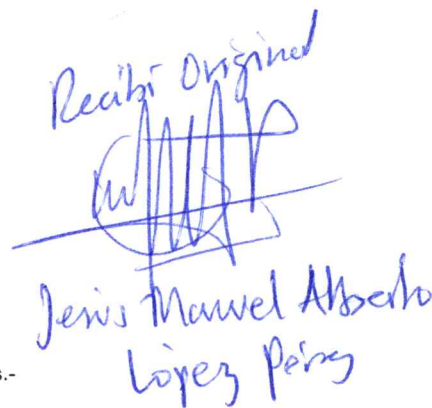 Recibí Original
Jesús Manuel Alberto
López Pérez
s.-